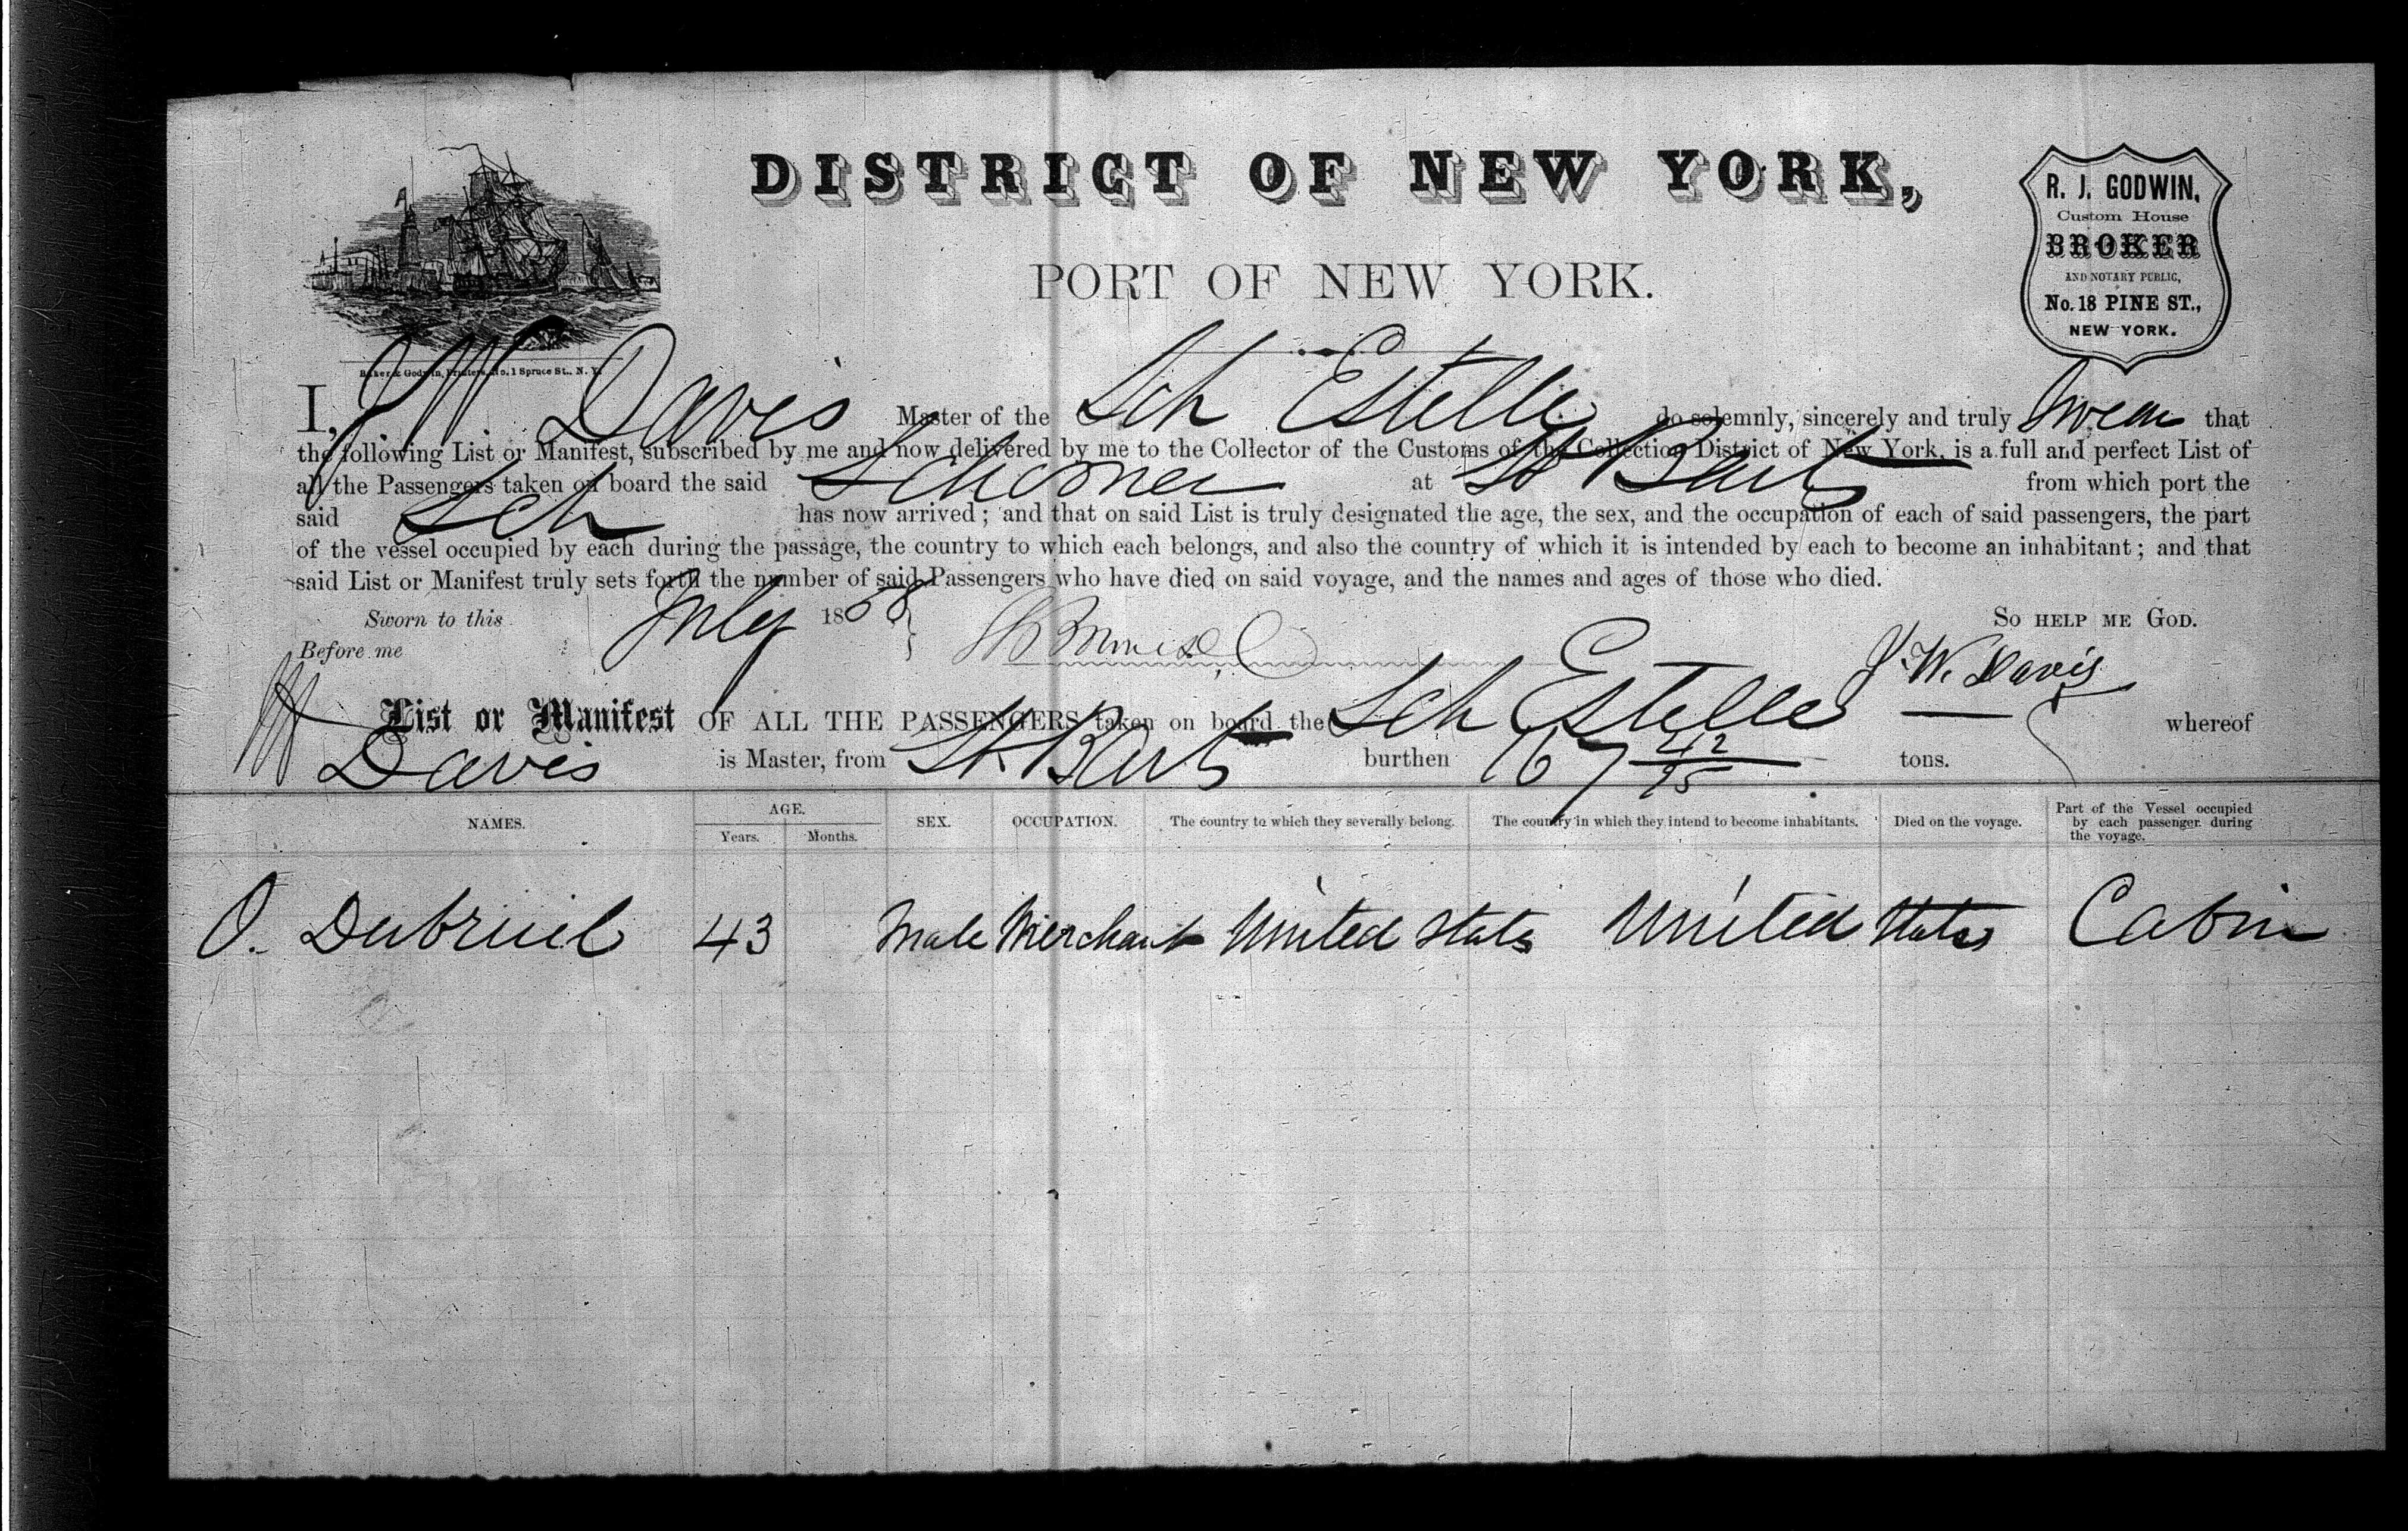 DISTRICT OF NEW YORK,
PORT OF NEW YORK.
R. J. GODWIN,
Custom House
BROKER
AND NOTARY PUBLIC,
No. 18 PINE ST.,
NEW YORK.
Baker & Godwin, Printers, No. 1 Spruce St., N. Y.
I, J W Davis Master of the Sch Estelle do solemnly, sincerely and truly swear that
the following List or Manifest, subscribed by me and now delivered by me to the Collector of the Customs of the Collection District of New York, is a full and perfect List of
all the Passengers taken on board the said Schooner at St Barts from which port the
said Sch has now arrived; and that on said List is truly designated the age, the sex, and the occupation of each of said passengers, the part
of the vessel occupied by each during the passage, the country to which each belongs, and also the country of which it is intended by each to become an inhabitant; and that
said List or Manifest truly sets forth the number of said Passengers who have died on said voyage, and the names and ages of those who died.
Sworn to this July 18 So HELP ME GOD.
Before me J. W. Davis
List or Manifest OF ALL THE PASSENGERS taken on board the Sch Estelle whereof
Davis is Master, from St Barts burthen 167 42/95 tons.
NAMES. AGE. Years. Months. SEX. OCCUPATION. The country to which they severally belong. The country in which they intend to become inhabitants. Died on the voyage. Part of the Vessel occupied by each passenger during the voyage.
O. Dubruil 43 Male Merchant United States United States Cabin